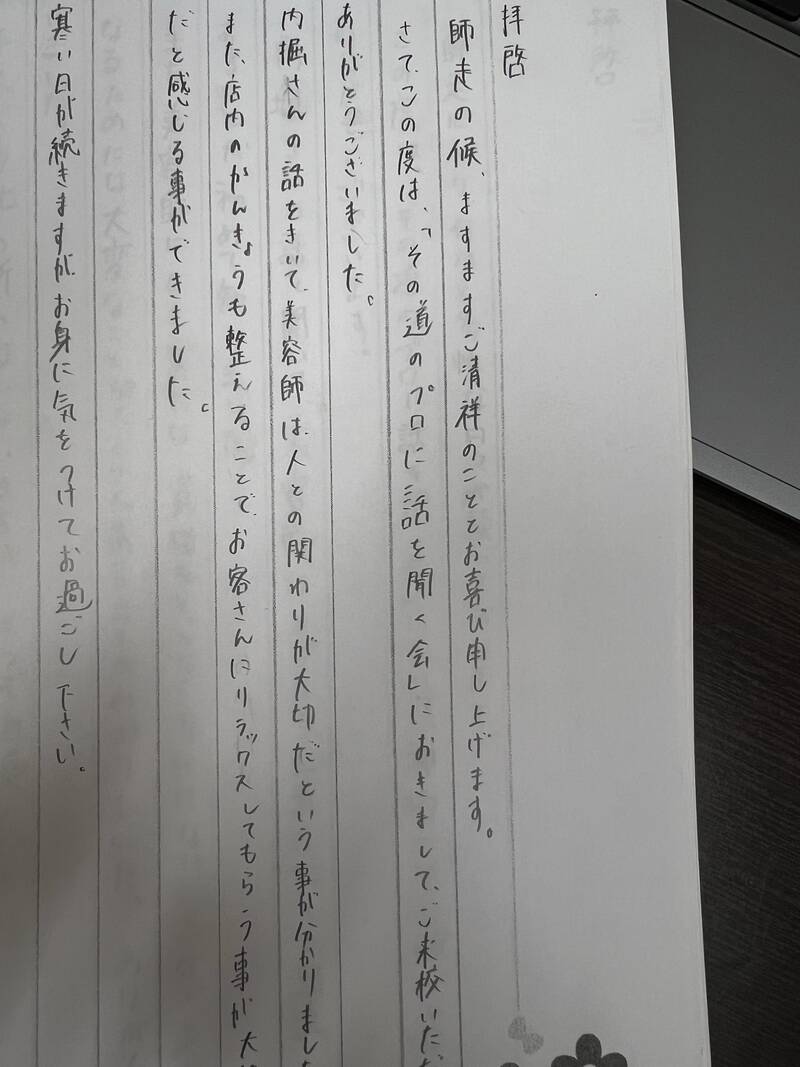 拝啓
師走の候、ますますご清祥のこととお喜び申し上げます。
さて、この度は、「その道のプロに話を聞く会」におきまして、ご来校いただ
ありがとうございました。
内堀さんの話をきいて、美容師は、人との関わりが大切だという事が分かりました
また、店内のかんきょうも整えることで、お客さんにリラックスしてもらう事が大
だと感じる事ができました。
寒い日が続きますが、お身に気をつけてお過ごし下さい。